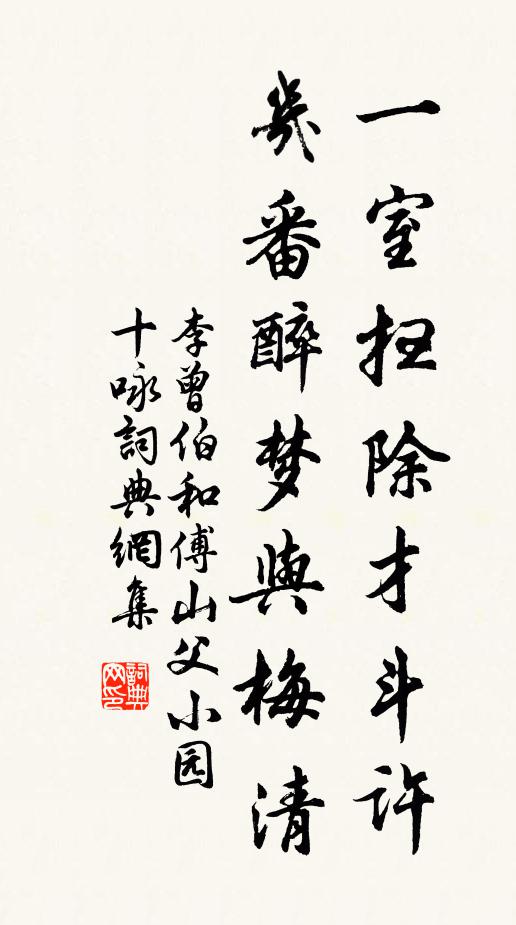 一室扫除才斗许
几番醉梦與梅清
李曾伯和傅山父小园
十咏詞典網集
詞典网印